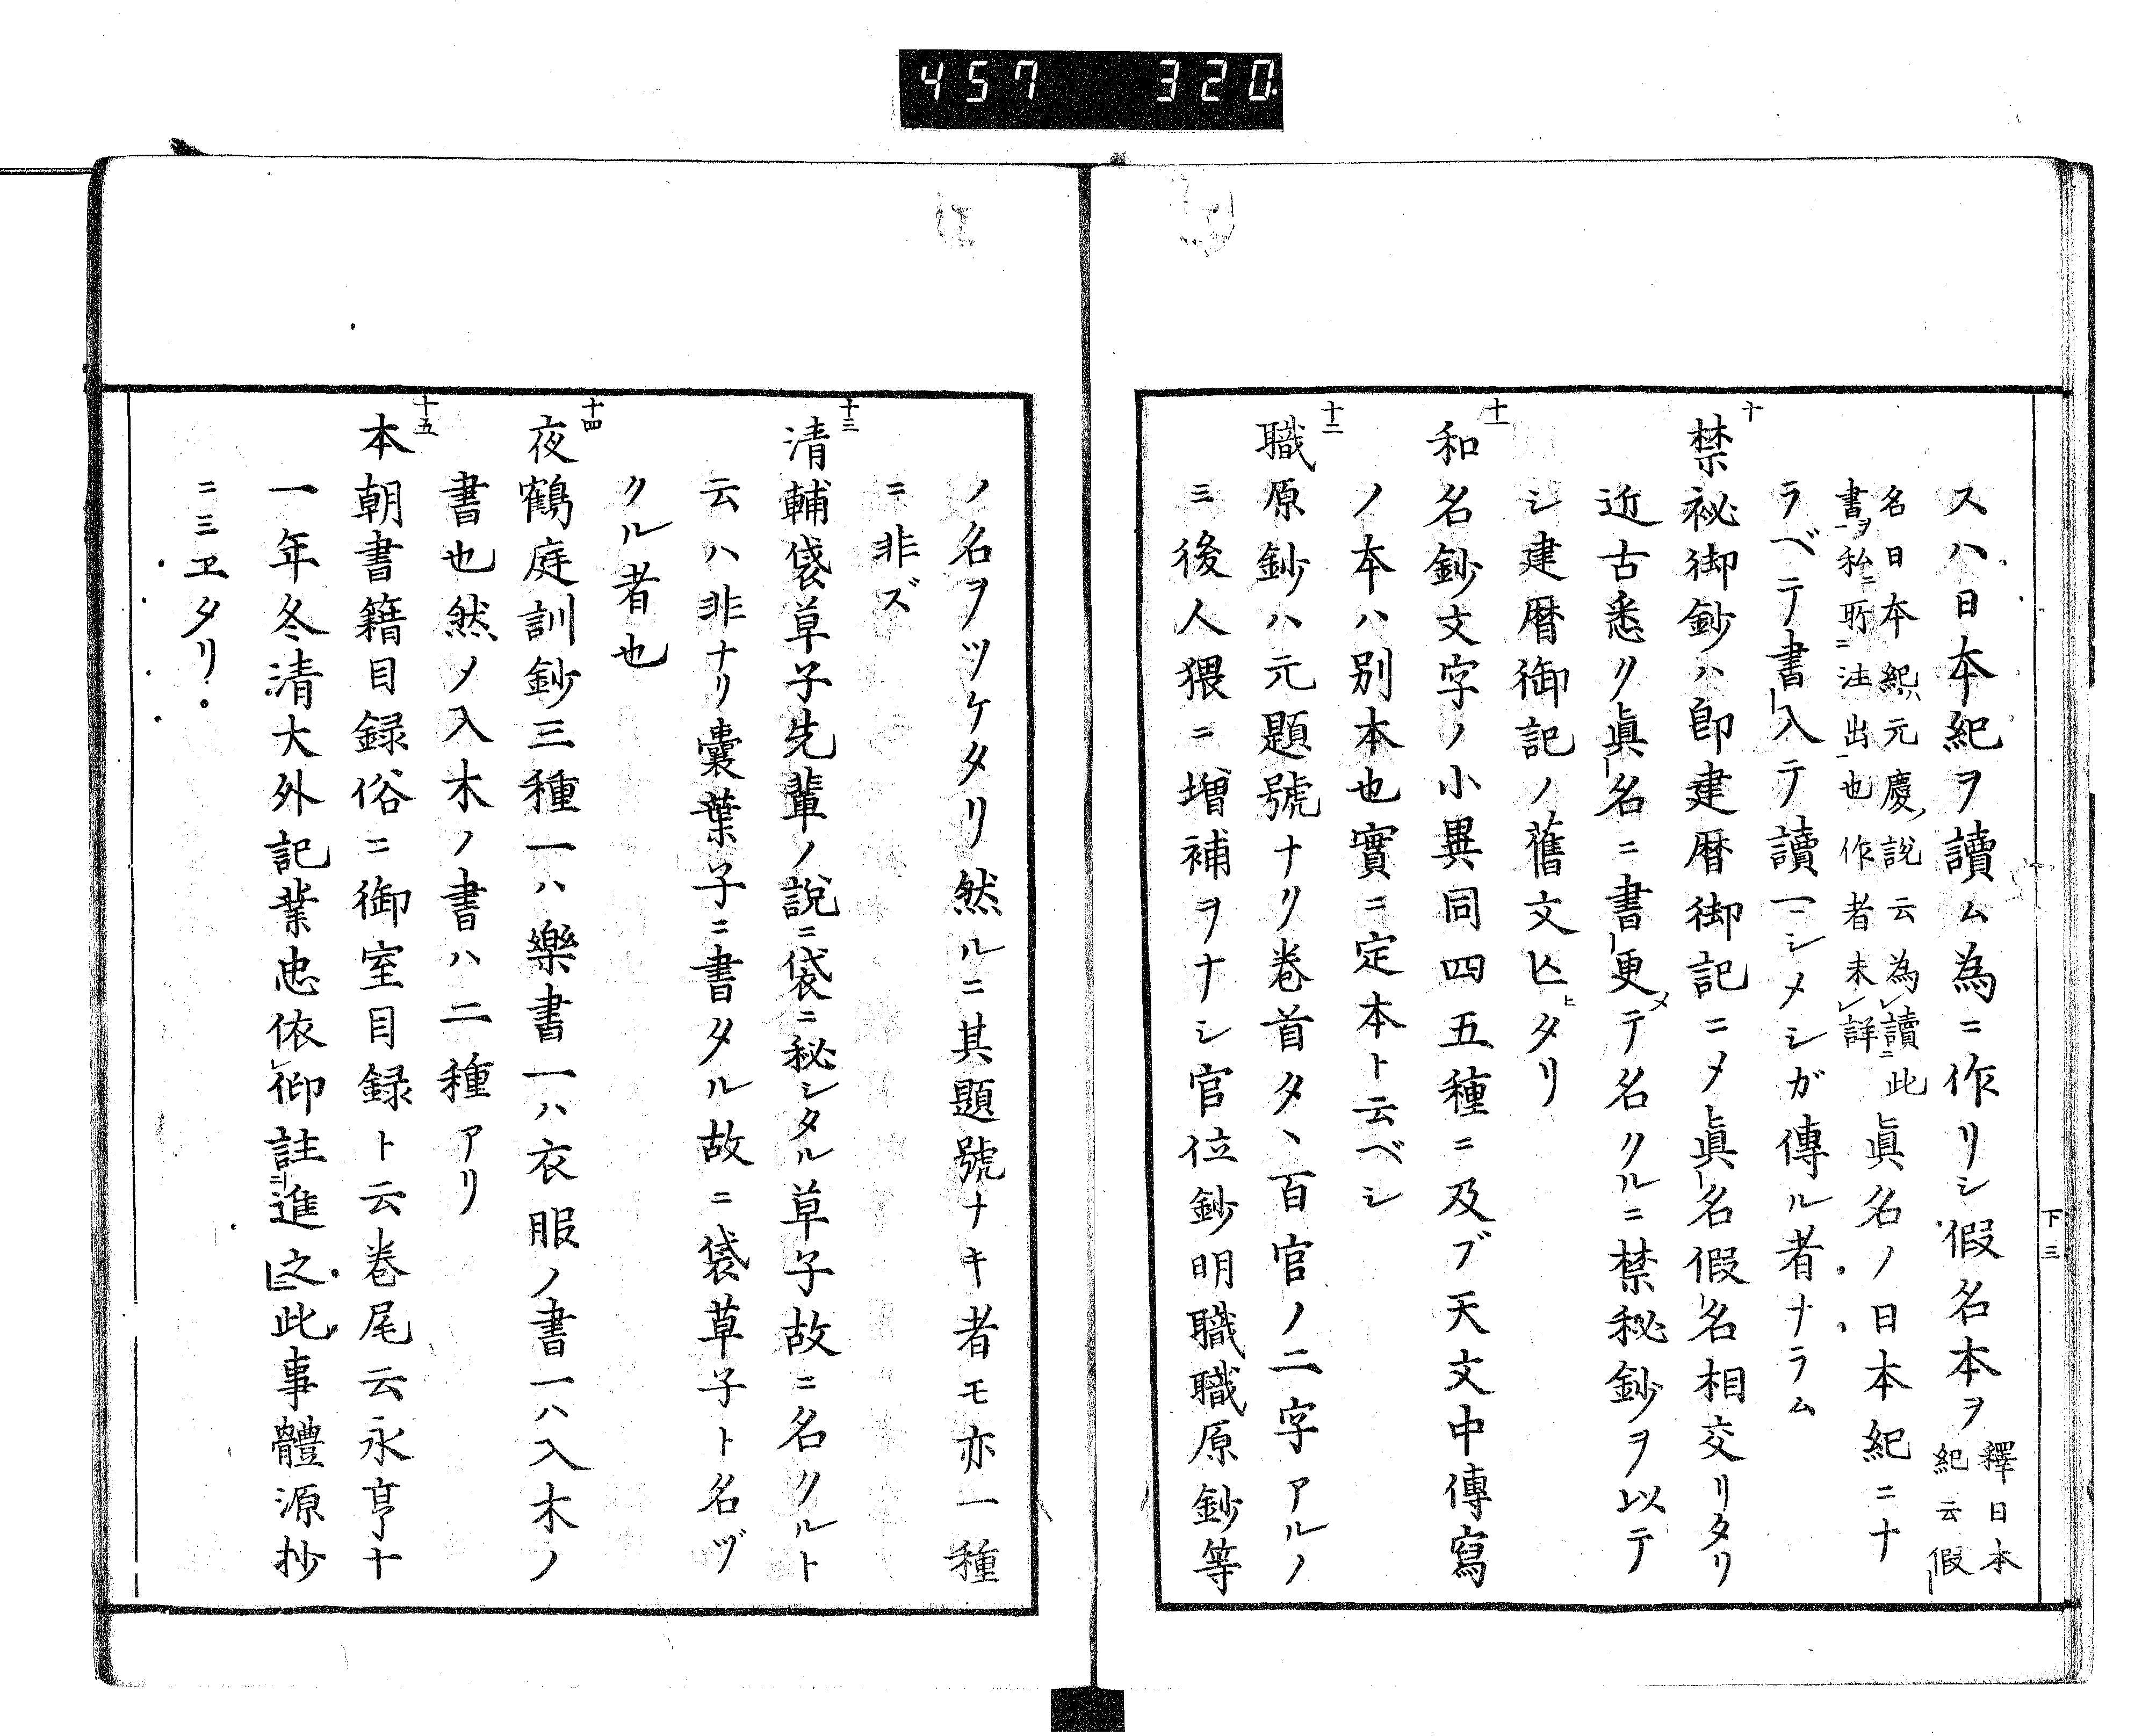 457 320
下三
スハ日本紀ヲ讀ム為ニ作リシ假名本ヲ釋日本紀云假
名日本紀元慶說云為讀此書私所注出也作者未詳眞名ノ日本紀ニナ
ラベテ書入テ讀ニシメシガ傳ル者ナラム
十
禁祕御鈔ハ即建暦御記ニメ眞名假名相交リタリ
近古悉ク眞名ニ書更テ名クルニ禁秘鈔ヲ以テ
シ建暦御記ノ舊文亾タリ
十一
和名鈔文字ノ小異同四五種ニ及ブ天文中傳寫
ノ本ハ別本也實ニ定本ト云ベシ
十二
職原鈔ハ元題號ナリ卷首タヽ百官ノ二字アルノ
ミ後人猥ニ増補ヲナシ官位鈔明職職原鈔等
ノ名ヲツケタリ然ルニ其題號ナキ者モ亦一種
ニ非ズ
十三
清輔袋草子先輩ノ說ニ袋ニ秘シタル草子故ニ名クルト
云ハ非ナリ囊葉子ニ書タル故ニ袋草子ト名ヅ
クル者也
十四
夜鶴庭訓鈔三種一ハ樂書一ハ衣服ノ書一ハ入木ノ
書也然ノ入木ノ書ハ二種アリ
十五
本朝書籍目録俗ニ御室目録ト云卷尾云永亨十
一年冬清大外記業忠依仰註進之此事體源抄
ニミヱタリ